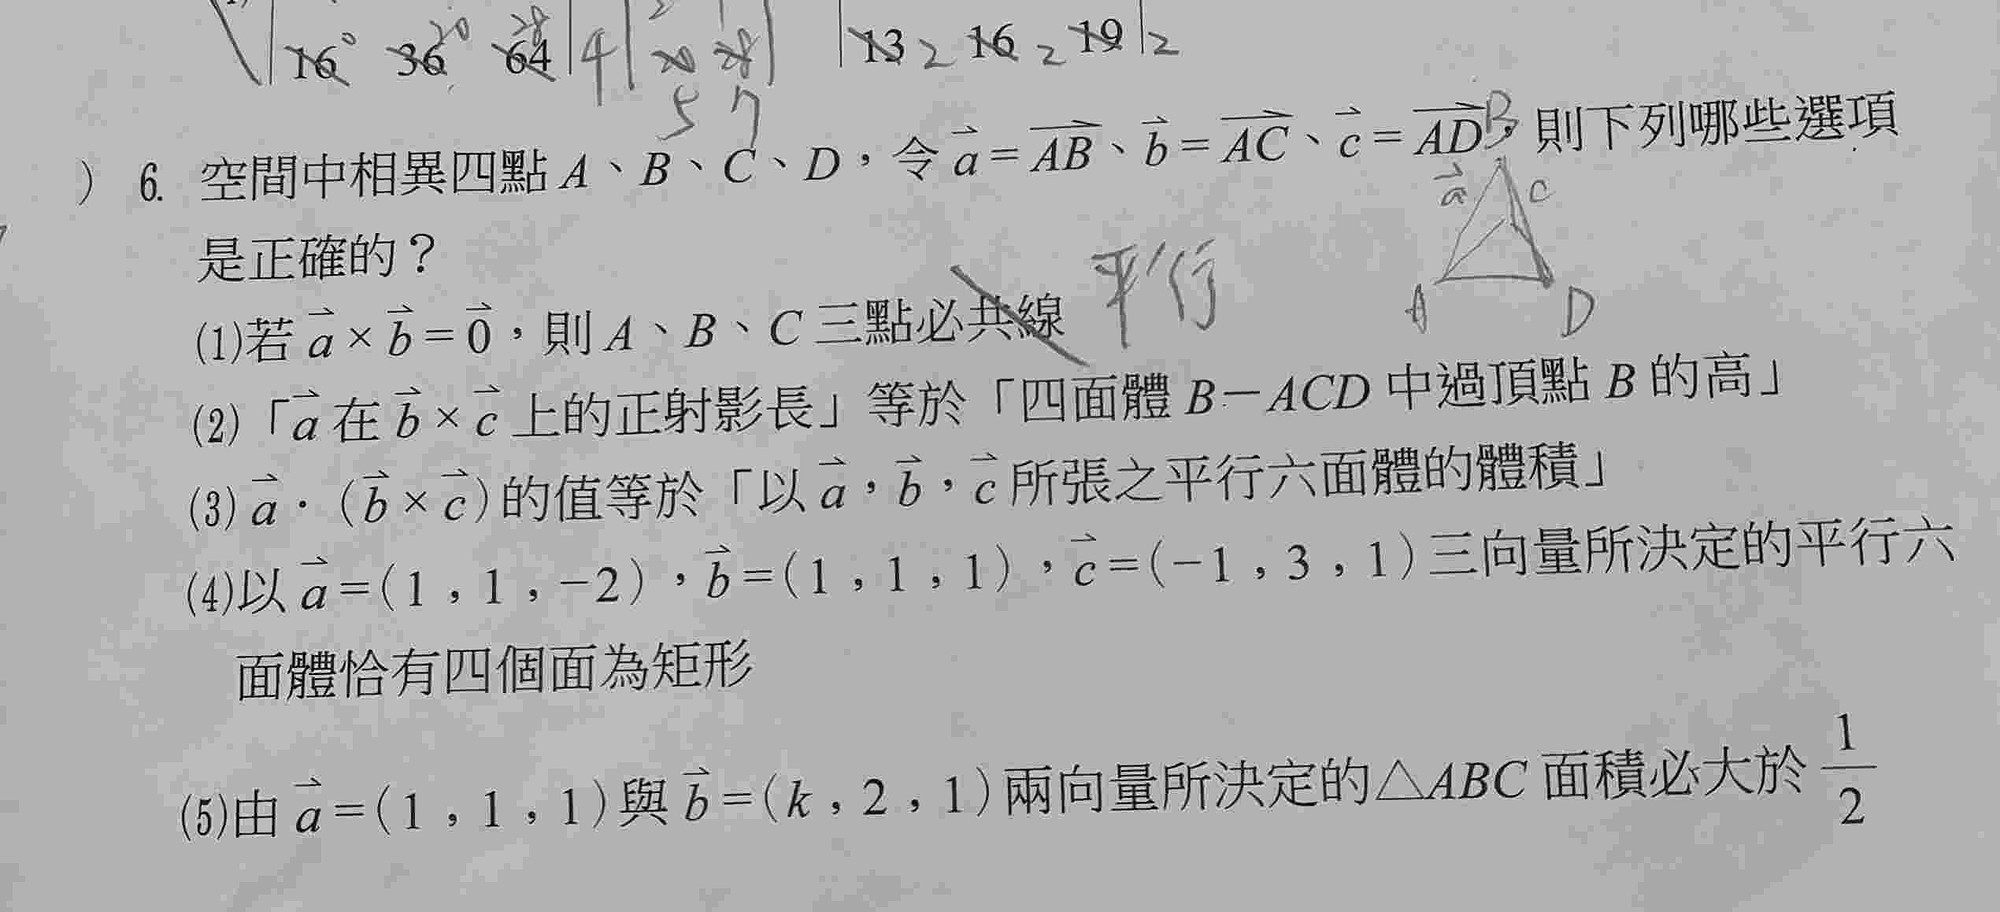 16 0 36 20 64 28 4 20 28 13 2 16 2 19 2
5 7
) 6. 空間中相異四點 A、B、C、D,令 a⃗ = AB⃗、b⃗ = AC⃗、c⃗ = AD⃗,則下列哪些選項
B
a⃗ C
是正確的?
平行
A D
(1)若 a⃗ × b⃗ = 0⃗,則 A、B、C 三點必共線
(2)「a⃗ 在 b⃗ × c⃗ 上的正射影長」等於「四面體 B-ACD 中過頂點 B 的高」
(3) a⃗ ·(b⃗ × c⃗)的值等於「以 a⃗,b⃗,c⃗ 所張之平行六面體的體積」
(4)以 a⃗ = (1,1,-2),b⃗ = (1,1,1),c⃗ = (-1,3,1)三向量所決定的平行六
面體恰有四個面為矩形
(5)由 a⃗ = (1,1,1)與 b⃗ = (k,2,1)兩向量所決定的△ABC 面積必大於 1/2